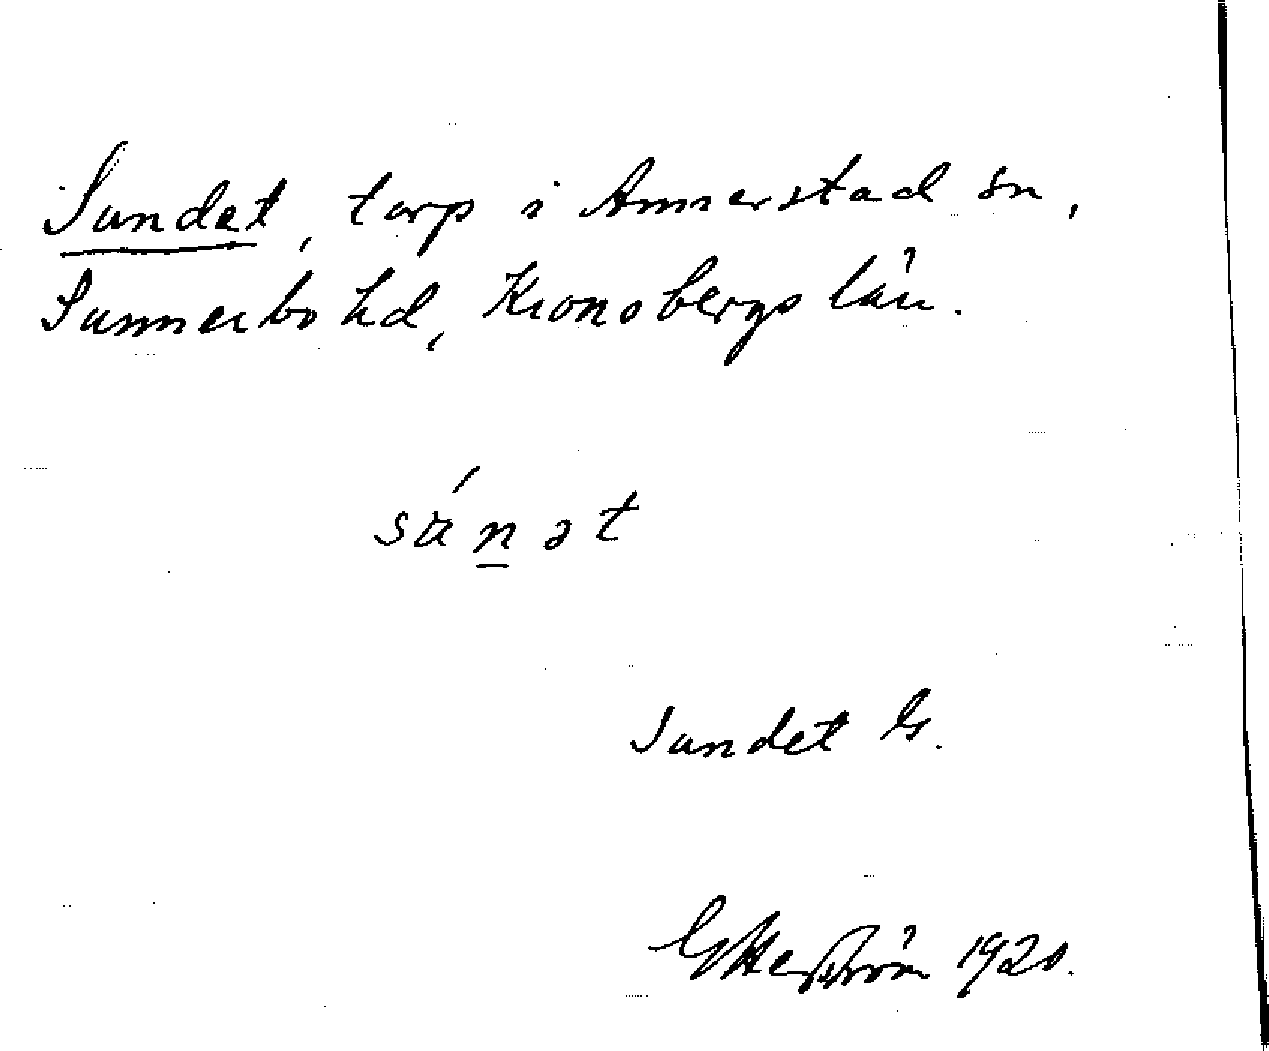 Sundet, torp i Annerstad sn,
Sunnerbo hd, Kronobergs län.
súnət
Sundet G.
1920.